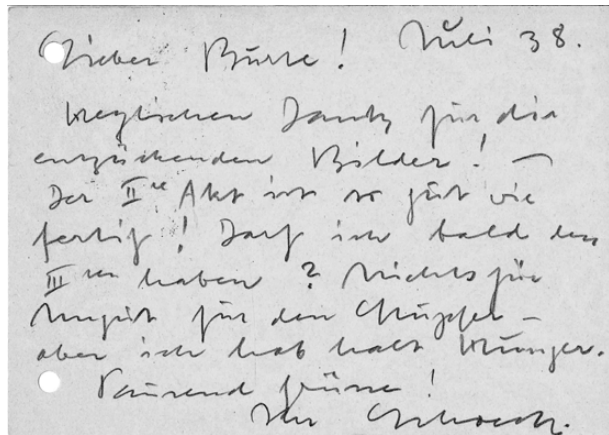 Lieber Burte! Juli 38.
Herzlichen Dank für die
entzückenden Bilder! —
Der IIte Akt ist so gut wie
fertig! Darf ich bald den
IIIten haben? Nichts für
ungut für den —
aber ich hab halt Hunger.
Tausend Grüsse!
Ihr Schoeck.